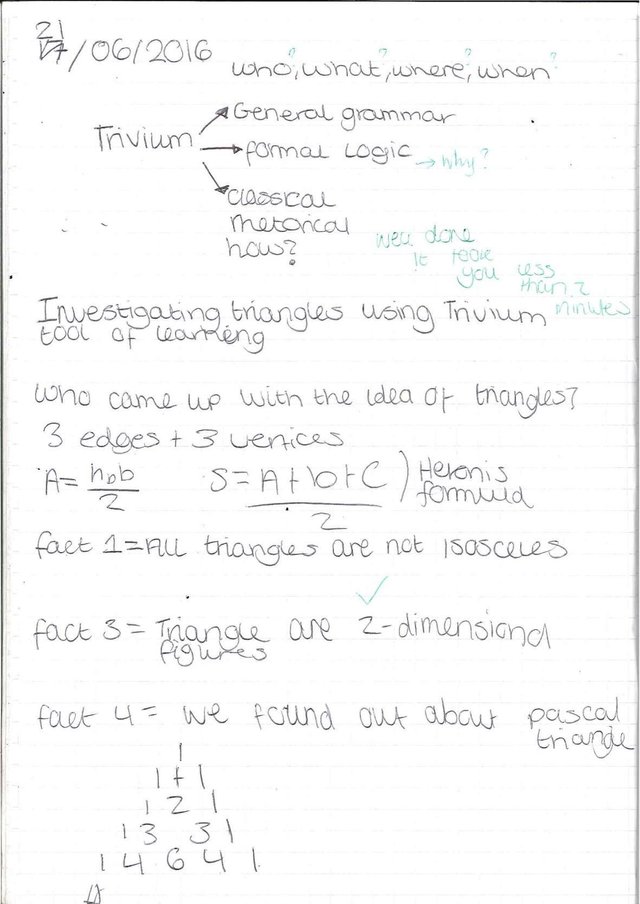 21
17/06/2016
who?, what?, where?, when?
General grammar
Trivium
formal Logic → why?
classical
rhetorical
how?
well done
it took
you less
than 2
minutes
Investigating triangles using Trivium
tool of learning
who came up with the idea of triangles?
3 edges + 3 vertices
A = hbb/2 S = A+b+C/2 ) Heronis
formula
fact 1 = All triangles are not isosceles
fact 3 = Triangle are 2-dimensional
figures
fact 4 = we found out about pascal
triangle
1
1 + 1
1 2 1
1 3 3 1
1 4 6 4 1